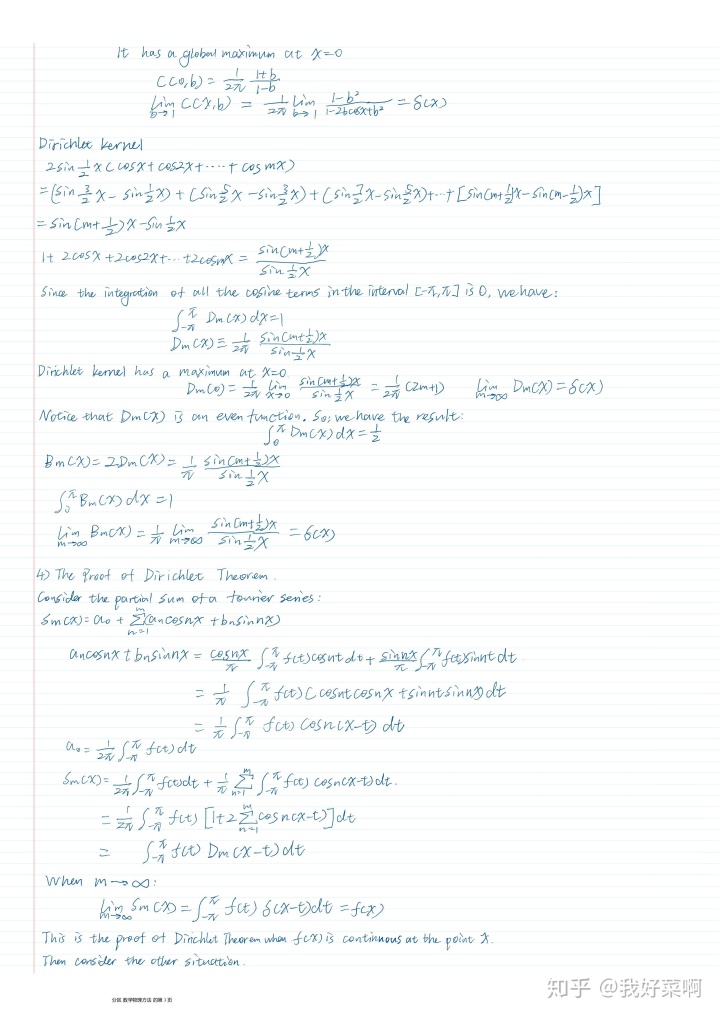 It has a global maximum at x=0
C(0,b) = \frac{1}{2π} \frac{1+b}{1-b}
\lim_{b→1} C(x,b) = \frac{1}{2π} \lim_{b→1} \frac{1-b²}{1-2bcosx+b²} = δ(x)
Dirichlet kernel
2sin\frac{1}{2}x(cosx+cos2x+····+cosmx)
=(sin\frac{3}{2}x-sin\frac{1}{2}x)+(sin\frac{5}{2}x-sin\frac{3}{2}x)+(sin\frac{7}{2}x-sin\frac{5}{2}x)+···+[sin(m+\frac{1}{2})x-sin(m-\frac{1}{2})x]
=sin(m+\frac{1}{2})x-sin\frac{1}{2}x
1+2cosx+2cos2x+···+2cosmx = \frac{sin(m+\frac{1}{2})x}{sin\frac{1}{2}x}
Since the integration of all the cosine terms in the interval [-π,π] is 0, we have:
∫_{-π}^{π} Dm(x)dx=1
Dm(x)≡\frac{1}{2π} \frac{sin(m+\frac{1}{2})x}{sin\frac{1}{2}x}
Dirichlet kernel has a maximum at x=0
Dm(0)=\frac{1}{2π} \lim_{x→0} \frac{sin(m+\frac{1}{2})x}{sin\frac{1}{2}x} = \frac{1}{2π}(2m+1) \lim_{m→∞} Dm(x)=δ(x)
Notice that Dm(x) is an even function. So, we have the result:
∫_{0}^{π} Dm(x)dx=\frac{1}{2}
Bm(x)=2Dm(x)=\frac{1}{π} \frac{sin(m+\frac{1}{2})x}{sin\frac{1}{2}x}
∫_{0}^{π} Bm(x)dx=1
\lim_{m→∞} Bm(x)=\frac{1}{π} \lim_{m→∞} \frac{sin(m+\frac{1}{2})x}{sin\frac{1}{2}x} = δ(x)
4) The Proof of Dirichlet Theorem.
Consider the partial sum of a fourier series:
Sm(x)=a₀+\sum_{n=1}^{m}(ancosnx+bnsinnx)
ancosnx+bnsinnx = \frac{cosnx}{π} ∫_{-π}^{π} f(t)cosntdt+\frac{sinnx}{π}∫_{-π}^{π} f(t)sinntdt
= \frac{1}{π} ∫_{-π}^{π} f(t)(cosntcosnx+sinntsinnx)dt
= \frac{1}{π} ∫_{-π}^{π} f(t)cosn(x-t)dt
a₀=\frac{1}{2π}∫_{-π}^{π} f(t)dt
Sm(x)=\frac{1}{2π}∫_{-π}^{π} f(t)dt+\frac{1}{π}\sum_{n=1}^{m}∫_{-π}^{π} f(t)cosn(x-t)dt.
=\frac{1}{2π}∫_{-π}^{π} f(t)[1+2\sum_{n=1}^{m}cosn(x-t)]dt
= ∫_{-π}^{π} f(t)Dm(x-t)dt
When m→∞:
\lim_{m→∞} Sm(x)=∫_{-π}^{π} f(t)δ(x-t)dt=f(x)
This is the proof of Dirichlet Theorem when f(x) is continuous at the point x.
Then consider the other situation.
分区 数学物理方法 的第 3 页
知乎 @我好菜啊